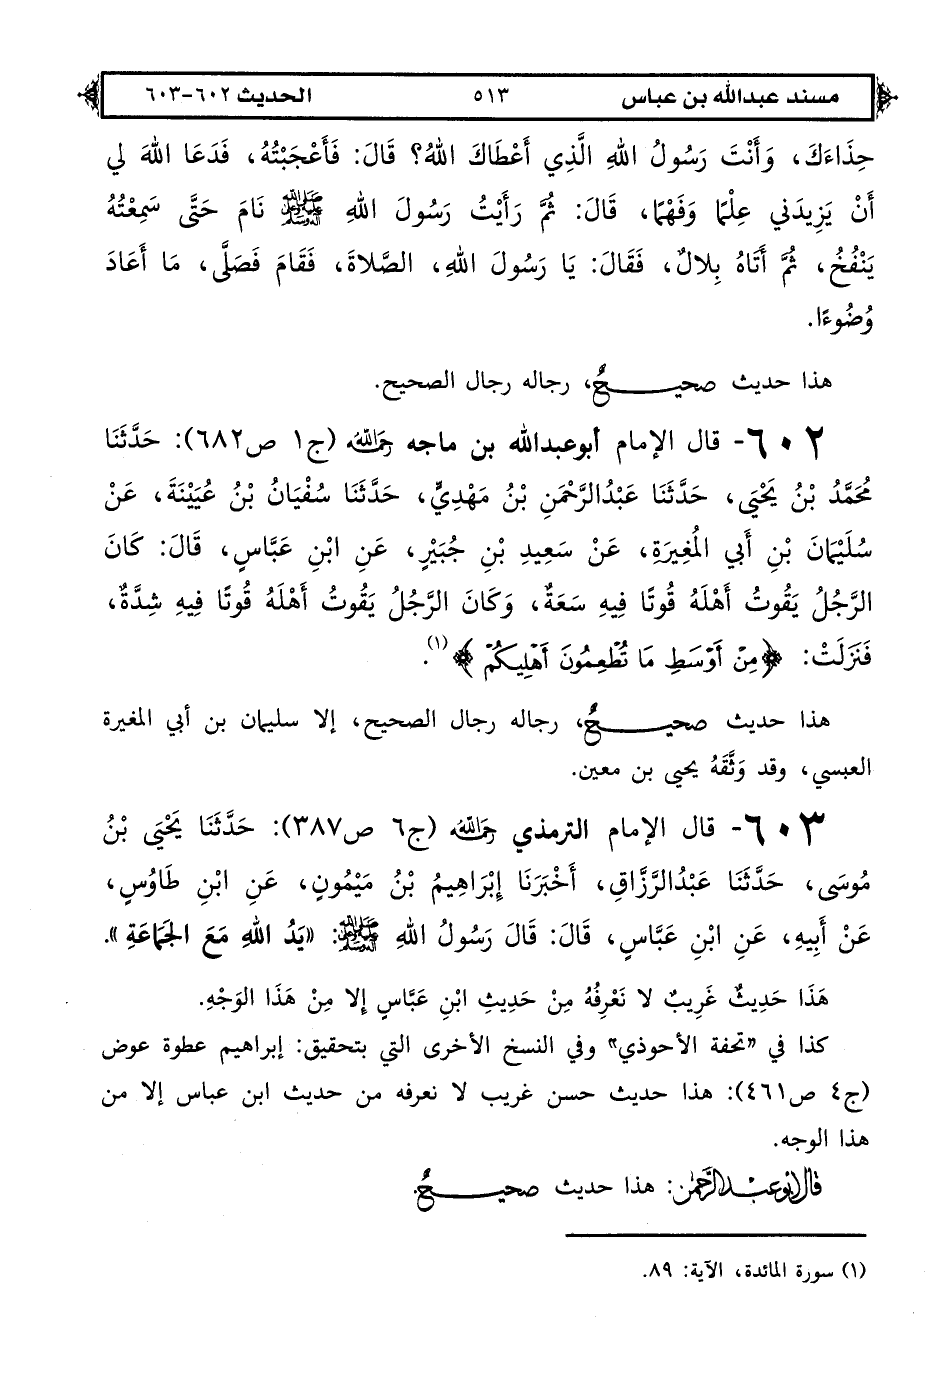 مسند عبدالله بن عباس ٥١٣ الحديث ٦٠٢-٦٠٣
حِذَاءَكَ، وَأَنْتَ رَسُولُ اللهِ الَّذِي أَعْطَاكَ اللهُ؟ قَالَ: فَأَعْجَبْتُهُ، فَدَعَا اللهَ لِي
أَنْ يَزِيدَنِي عِلْمًا وَفَهْمًا، قَالَ: ثُمَّ رَأَيْتُ رَسُولَ اللهِ ﷺ نَامَ حَتَّى سَمِعْتُهُ
يَنْفُخُ، ثُمَّ أَتَاهُ بِلالٌ، فَقَالَ: يَا رَسُولَ اللهِ، الصَّلاةَ، فَقَامَ فَصَلَّى، مَا أَعَادَ
وُضُوءًا.
هذا حديث صحيحٌ، رجاله رجال الصحيح.
٦٠٢- قال الإمام أبوعبدالله بن ماجه رحمه الله (ج١ ص٦٨٢): حَدَّثَنَا
مُحَمَّدُ بْنُ يَحْيَى، حَدَّثَنَا عَبْدُالرَّحْمَنِ بْنُ مَهْدِيٍّ، حَدَّثَنَا سُفْيَانُ بْنُ عُيَيْنَةَ، عَنْ
سُلَيْمَانَ بْنِ أَبِي المُغِيرَةِ، عَنْ سَعِيدِ بْنِ جُبَيْرٍ، عَنِ ابْنِ عَبَّاسٍ، قَالَ: كَانَ
الرَّجُلُ يَقُوتُ أَهْلَهُ قُوتًا فِيهِ سَعَةٌ، وَكَانَ الرَّجُلُ يَقُوتُ أَهْلَهُ قُوتًا فِيهِ شِدَّةٌ،
فَنَزَلَتْ: ﴿مِنْ أَوْسَطِ مَا تُطْعِمُونَ أَهْلِيكُمْ﴾(١).
هذا حديث صحيحٌ، رجاله رجال الصحيح، إلا سليمان بن أبي المغيرة
العبسي، وقد وَثَّقَهُ يحيى بن معين.
٦٠٣- قال الإمام الترمذي رحمه الله (ج٦ ص٣٨٧): حَدَّثَنَا يَحْيَى بْنُ
مُوسَى، حَدَّثَنَا عَبْدُالرَّزَّاقِ، أَخْبَرَنَا إِبْرَاهِيمُ بْنُ مَيْمُونٍ، عَنِ ابْنِ طَاوُسٍ،
عَنْ أَبِيهِ، عَنِ ابْنِ عَبَّاسٍ، قَالَ: قَالَ رَسُولُ اللهِ ﷺ: «يَدُ اللهِ مَعَ الجَمَاعَةِ».
هَذَا حَدِيثٌ غَرِيبٌ لا نَعْرِفُهُ مِنْ حَدِيثِ ابْنِ عَبَّاسٍ إِلا مِنْ هَذَا الوَجْهِ.
كذا في «تحفة الأحوذي» وفي النسخ الأخرى التي بتحقيق: إبراهيم عطوة عوض
(ج٤ ص٤٦١): هذا حديث حسن غريب لا نعرفه من حديث ابن عباس إلا من
هذا الوجه.
قال أبو عبد الرحمن: هذا حديث صحيحٌ.
(١) سورة المائدة، الآية: ٨٩.